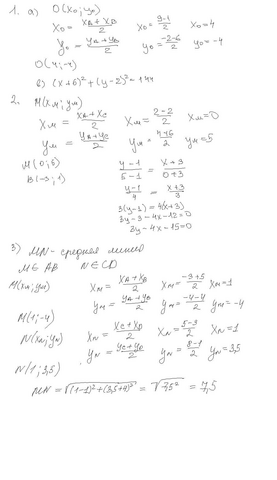 1. а) O(x₀; y₀)
x₀ = (x_A + x_B)/2  x₀ = (9-1)/2  x₀ = 4
y₀ = (y_A + y_B)/2  y₀ = (-2-6)/2  y₀ = -4
O(4; -4)
б) (x+6)² + (y-2)² = 144
2. M(x_M; y_M)
x_M = (x_A + x_C)/2  x_M = (2-2)/2  x_M = 0
y_M = (y_A + y_C)/2  y_M = (4+6)/2  y_M = 5
M(0; 5)  (y-1)/(5-1) = (x+3)/(0+3)
B(-3; 1)  (y-1)/4 = (x+3)/3
3(y-1) = 4(x+3)
3y-3-4x-12=0
3y-4x-15=0
3) MN - средняя линия
M ∈ AB  N ∈ CD
M(x_M; y_M)  x_M = (x_A + x_B)/2  x_M = (-3+5)/2  x_M = 1
y_M = (y_A + y_B)/2  y_M = (-4-4)/2  y_M = -4
M(1; -4)
N(x_N; y_N)  x_N = (x_C + x_D)/2  x_N = (5-3)/2  x_N = 1
y_N = (y_C + y_D)/2  y_N = (8-1)/2  y_N = 3,5
N(1; 3,5)
MN = √((1-1)² + (3,5+4)²) = √7,5² = 7,5